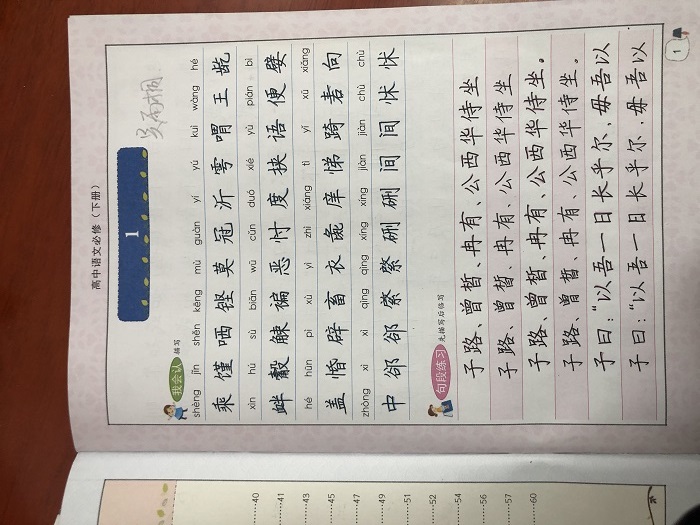 高中语文必修（下册）
1
我会认 描写
shèng jǐn shěn kēng mù guàn yí yú kuì wàng hé
乘 馑 哂 铿 莫 冠 沂 雩 喟 王 龁
xìn hú sù biǎn wū cǔn duó xié yù pián bì
衅 觳 觫 褊 恶 忖 度 挟 语 便 嬖
hé hūn pì xù yì zhì xiáng tì yǐ xū xiàng
盖 惛 辟 畜 衣 彘 庠 悌 踦 砉 向
zhòng xì xì qìng qìng xíng xíng jiàn jiàn chù chù
中 郤 郤 綮 綮 硎 硎 间 间 怵 怵
句段练习 先描写后临写
子路、曾皙、冉有、公西华侍坐
子路、曾皙、冉有、公西华侍坐
子路、曾皙、冉有、公西华侍坐。
子路、曾皙、冉有、公西华侍坐。
子曰：“以吾一日长乎尔，毋吾以
子曰：“以吾一日长乎尔，毋吾以
1
……40
……41
……43
……45
……47
……49
……51
……52
……54
……56
……57
……60